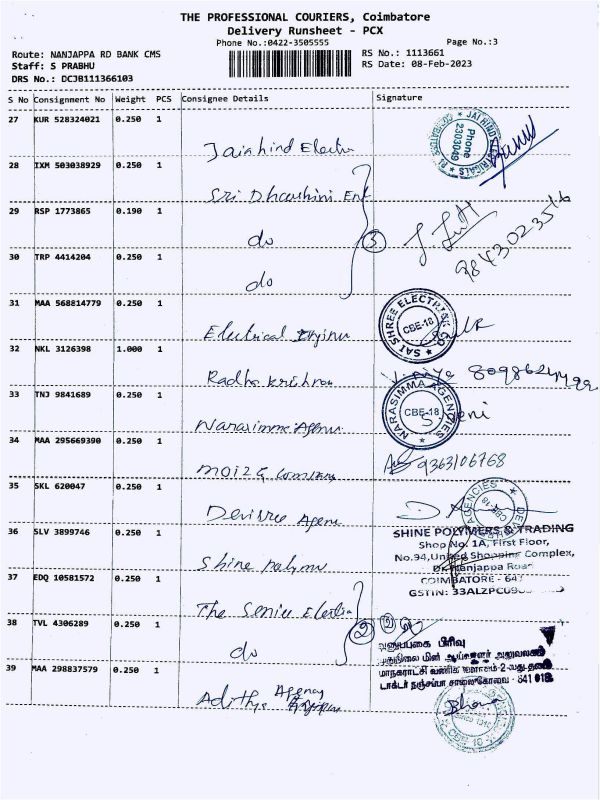 THE PROFESSIONAL COURIERS, Coimbatore
Delivery Runsheet - PCX
Phone No.:0422-3505555
Page No.:3
Route: NANJAPPA RD BANK CMS
Staff: S PRABHU
DRS No.: DCJB111366103
RS No.: 1113661
RS Date: 08-Feb-2023
S No Consignment No Weight PCS Consignee Details Signature
27 KUR 528324021 0.250 1
Jaiahind Electri
JAI HIND ELECTRICALS
Phone 2303049
28 IXM 503038929 0.250 1
Sri Dhaashini Ent
29 RSP 1773865 0.190 1
do
3
30 TRP 4414204 0.250 1
do
31 MAA 568814779 0.250 1
Electrical
SAI SHREE ELECTRICALS
CBE-18
32 NKL 3126398 1.000 1
Radha Krishna
33 TNJ 9841689 0.250 1
Narasimma Agency
NARASIMMA AGENCIES
CBE-18
34 MAA 295669390 0.250 1
moiz & company
9363106768
35 SKL 620047 0.250 1
Devisree Agenc
36 SLV 3899746 0.250 1
Shine Polymer
SHINE POLYMERS & TRADING
Shop No. 1A, First Floor,
No.94, United Shopping Complex,
Dr. Nanjappa Road
COIMBATORE - 641
GSTIN: 33ALZPC
37 EDQ 10581572 0.250 1
The Senior Electri
2
38 TVL 4306289 0.250 1
do
பிரிவு
முதுநிலை மின் ஆய்வாளர் அலுவலகம்
மாநகராட்சி வணிக வளாகம்-2-வது தளம்
டாக்டர் நஞ்சப்பா சாலை கோவை - 641 018
39 MAA 298837579 0.250 1
Adithya Agency